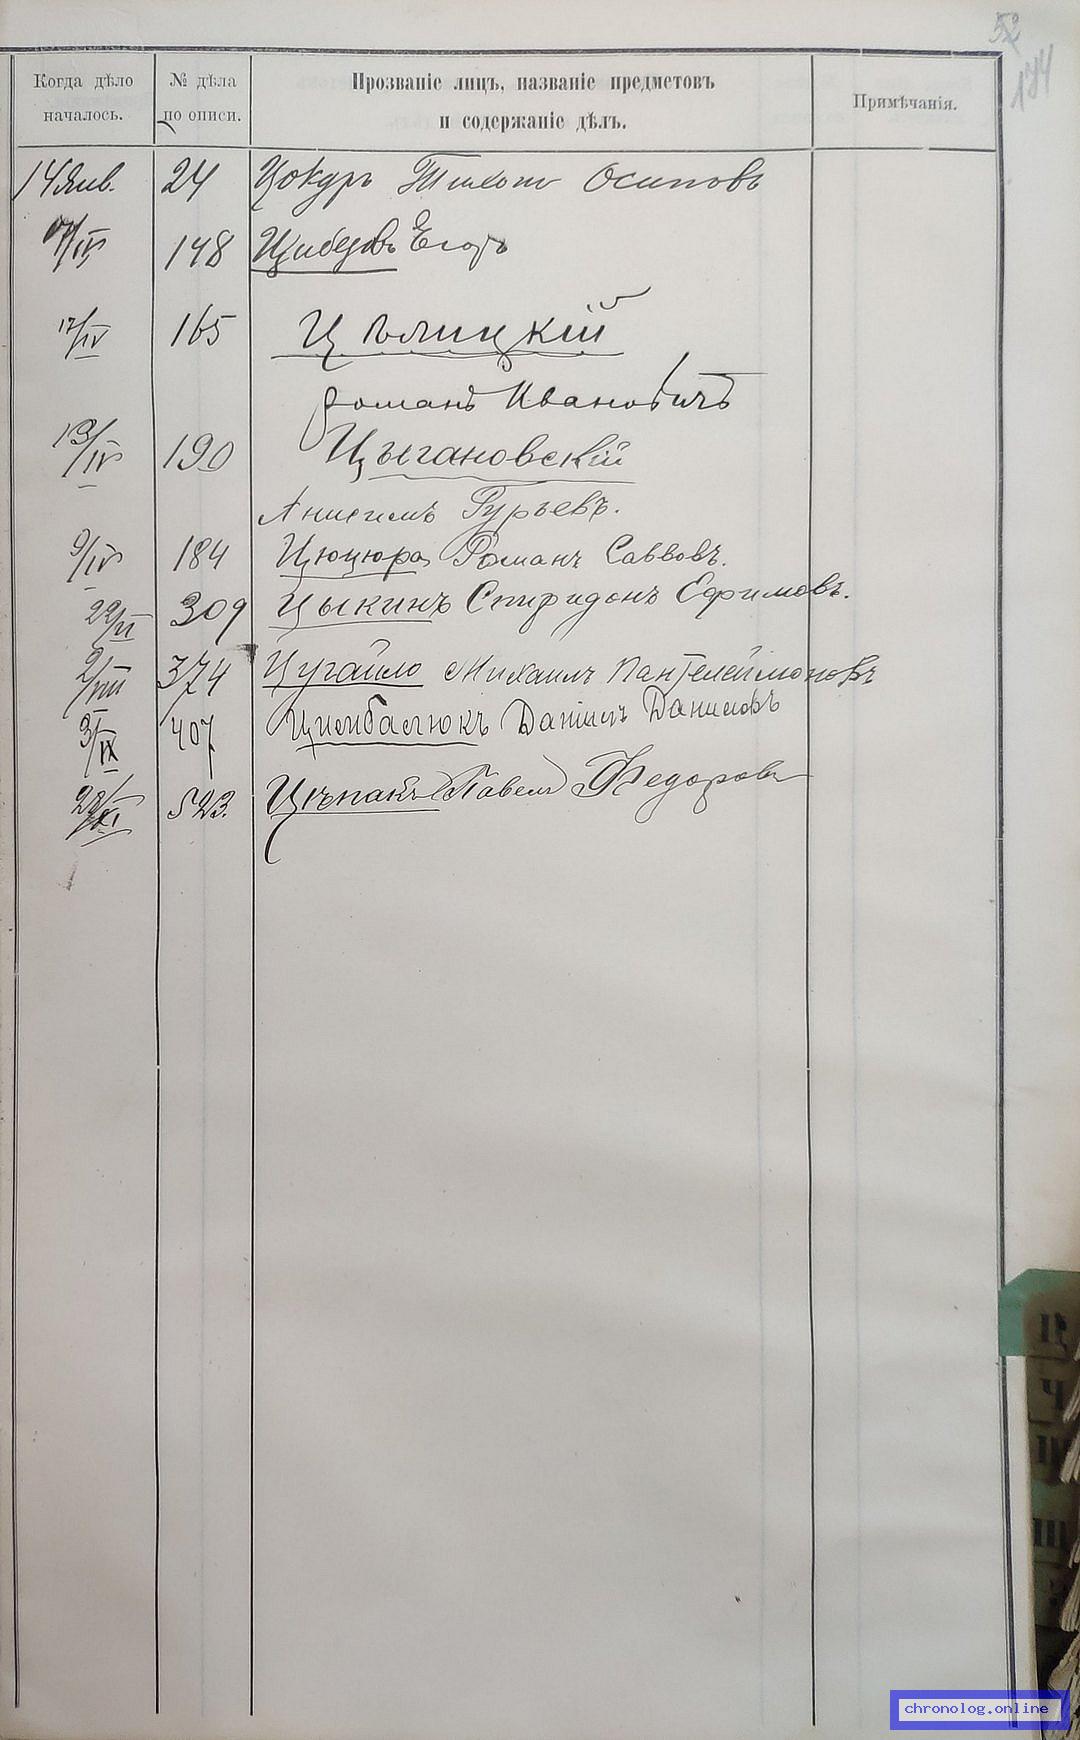 52
174
Когда дѣло началось.
№ дѣла по описи.
Прозваніе лицъ, названіе предметовъ и содержаніе дѣлъ.
Примѣчанія.
14 Янв. 24 Цокуръ Тихонъ Осиповъ
/IV 148 Цибуловъ Егоръ
17/IV 165 Цѣлицкій
Романъ Ивановичъ
13/IV 190 Цыгановскій
Анисимъ Гурьевъ.
9/IV 184 Цюцюра Романъ Саввовъ.
22/VI 309 Цыкинъ Спиридонъ Ефимовъ.
2/VIII 374 Цугайло Михаилъ Пантелеймоновъ
3/IX 407 Цимбалюкъ Даніилъ Даниловъ
28/XI 523. Цѣпакъ Павелъ Федоровъ
chronolog.online